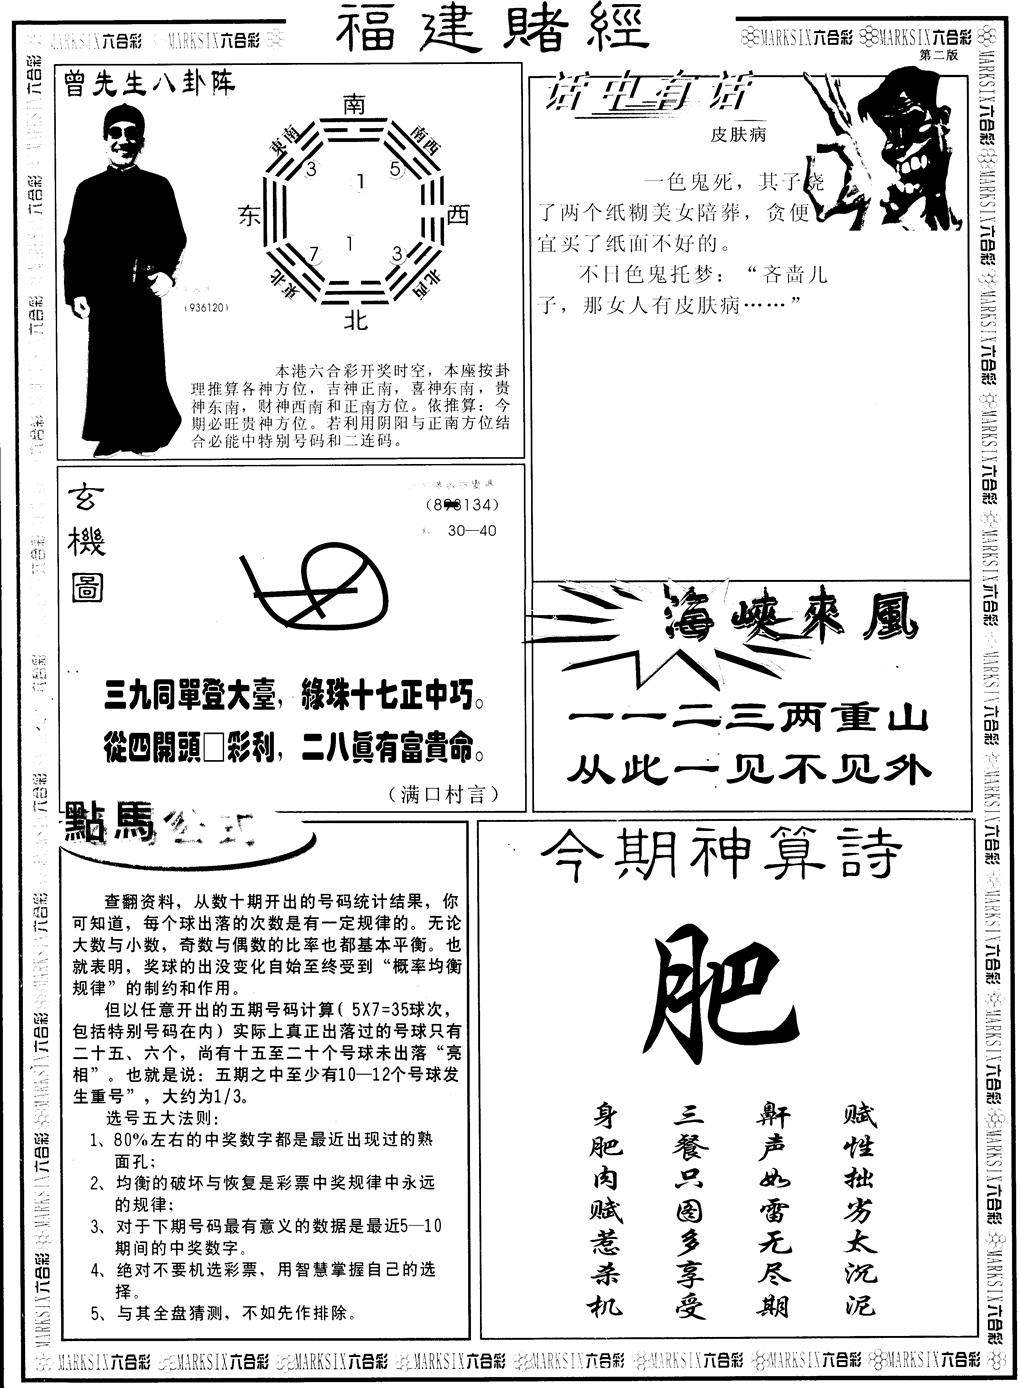 福建賭經
MARKSIX六合彩 MARKSIX六合彩
MARKSIX六合彩 MARKSIX六合彩
第二版
曾先生八卦阵
南
東南
南西
3
1
5
东
西
7
1
3
東北
北西
北
(936120)
本港六合彩开奖时空，本座按卦
理推算各神方位，吉神正南，喜神东南，贵
神东南，财神西南和正南方位。依推算：今
期必旺贵神方位。若利用阴阳与正南方位结
合必能中特别号码和二连码。
话中有话
皮肤病
一色鬼死，其子烧
了两个纸糊美女陪葬，贪便
宜买了纸面不好的。
不日色鬼托梦：“吝啬儿
子，那女人有皮肤病……”
玄機圖
30—40
三九同單登大臺，綠珠十七正中巧。
從四開頭□彩利，二八真有富貴命。
（满口村言）
海峽來風
一一二三两重山
从此一见不见外
點馬公式
查翻资料，从数十期开出的号码统计结果，你
可知道，每个球出落的次数是有一定规律的。无论
大数与小数，奇数与偶数的比率也都基本平衡。也
就表明，奖球的出没变化自始至终受到“概率均衡
规律”的制约和作用。
但以任意开出的五期号码计算( 5X7=35球次，
包括特别号码在内) 实际上真正出落过的号球只有
二十五、六个，尚有十五至二十个号球未出落“亮
相”。也就是说：五期之中至少有10—12个号球发
生重号”，大约为1/3。
选号五大法则：
1、80%左右的中奖数字都是最近出现过的熟
面孔；
2、均衡的破坏与恢复是彩票中奖规律中永远
的规律；
3、对于下期号码最有意义的数据是最近5—10
期间的中奖数字。
4、绝对不要机选彩票，用智慧掌握自己的选
择。
5、与其全盘猜测，不如先作排除。
今期神算詩
肥
赋性拙劣太沉泥
鼾声如雷无尽期
三餐只图多享受
身肥肉赋惹杀机
MARKSIX六合彩 MARKSIX六合彩 MARKSIX六合彩 MARKSIX六合彩 MARKSIX六合彩 MARKSIX六合彩 MARKSIX六合彩 MARKSIX六合彩